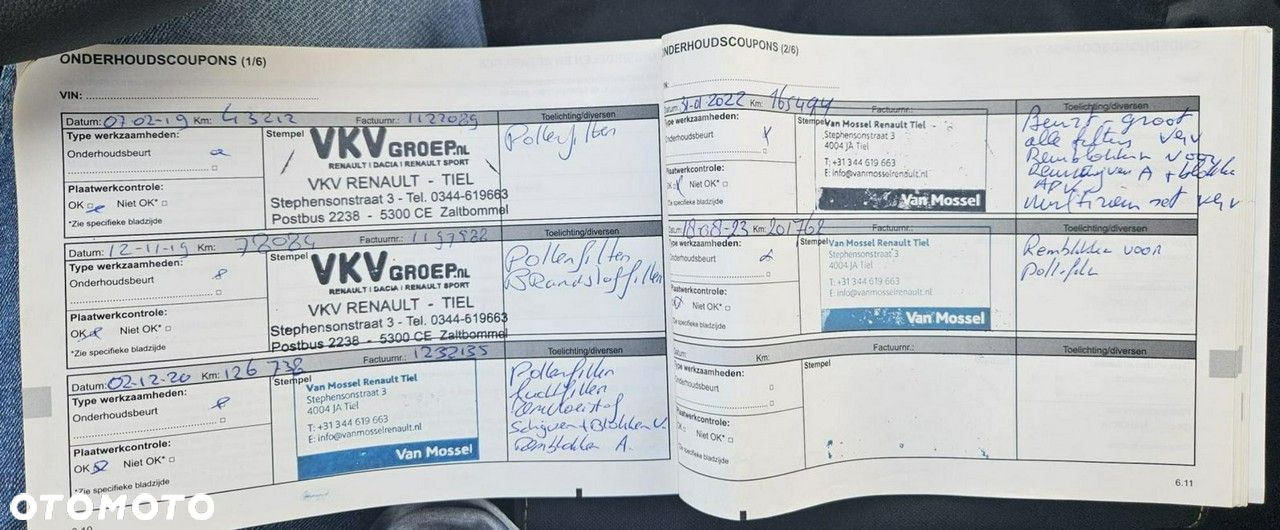 ONDERHOUDSCOUPONS (1/6)
VIN:
Datum: 07-02-19 Km: 43212 Factuurnr.: 1122089
Type werkzaamheden:
Onderhoudsbeurt
Plaatwerkcontrole:
OK Niet OK*
*Zie specifieke bladzijde
Stempel
VKV GROEP.NL
RENAULT | DACIA | RENAULT SPORT
VKV RENAULT - TIEL
Stephensonstraat 3 - Tel. 0344-619663
Postbus 2238 - 5300 CE Zaltbommel
Toelichting/diversen
Pollenfilter
Datum: 12-11-19 Km: 78084 Factuurnr.: 1197988
Type werkzaamheden:
Onderhoudsbeurt
Plaatwerkcontrole:
OK Niet OK*
*Zie specifieke bladzijde
Stempel
VKV GROEP.NL
RENAULT | DACIA | RENAULT SPORT
VKV RENAULT - TIEL
Stephensonstraat 3 - Tel. 0344-619663
Postbus 2238 - 5300 CE Zaltbommel
Toelichting/diversen
Pollenfilter
Brandstoffilter
Datum: 02-12-20 Km: 126 738 Factuurnr.: 1232135
Type werkzaamheden:
Onderhoudsbeurt
Plaatwerkcontrole:
OK Niet OK*
*Zie specifieke bladzijde
Stempel
Van Mossel Renault Tiel
Stephensonstraat 3
4004 JA Tiel
T: +31 344 619 663
E: info@vanmosselrenault.nl
Van Mossel
Toelichting/diversen
Pollenfilter
Luchtfilter
Remvloeistof
Schijven + Blokken V.
Remblokken A.
ONDERHOUDSCOUPONS (2/6)
Datum: 31-01-2022 Km: 165494 Factuurnr.:
Type werkzaamheden:
Onderhoudsbeurt
Plaatwerkcontrole:
OK Niet OK*
*Zie specifieke bladzijde
Stempel
Van Mossel Renault Tiel
Stephensonstraat 3
4004 JA Tiel
T: +31 344 619 663
E: info@vanmosselrenault.nl
Van Mossel
Toelichting/diversen
Beurt groot
alle filters verv
Remblokken voor
A + blokken
APK
multiriem set verv
Datum: 18-08-23 Km: 201768 Factuurnr.:
Type werkzaamheden:
Onderhoudsbeurt
Plaatwerkcontrole:
OK Niet OK*
Zie specifieke bladzijde
Stempel
Van Mossel Renault Tiel
Stephensonstraat 3
4004 JA Tiel
T: +31 344 619 663
E: info@vanmosselrenault.nl
Van Mossel
Toelichting/diversen
Remblokken voor
Datum: Km: Factuurnr.:
Type werkzaamheden:
Onderhoudsbeurt
Plaatwerkcontrole:
OK Niet OK*
*Zie specifieke bladzijde
Stempel
Toelichting/diversen
6.11
OTOMOTO